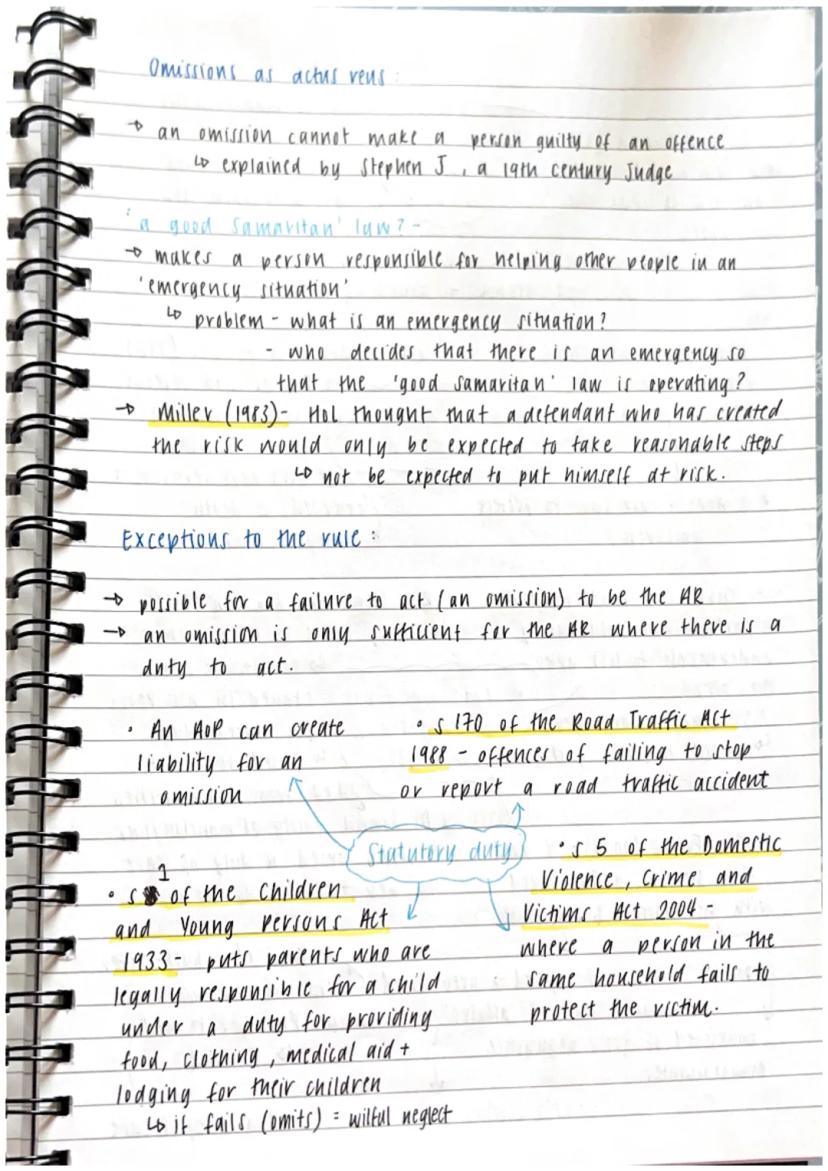 Omissions as actus reus:
→ an omission cannot make a person guilty of an offence
↳ explained by Stephen J, a 19th century Judge
'a good Samaritan' law? -
→ makes a person responsible for helping other people in an
'emergency situation'
↳ problem - what is an emergency situation?
- who decides that there is an emergency so
that the 'good samaritan' law is operating?
→ Miller (1983) - HoL thought that a defendant who has created
the risk would only be expected to take reasonable steps
↳ not be expected to put himself at risk.
Exceptions to the rule:
→ possible for a failure to act (an omission) to be the AR
→ an omission is only sufficient for the AR where there is a
duty to act.
• An AoP can create
liability for an
omission
• s 170 of the Road Traffic Act
1988 - offences of failing to stop
or report a road traffic accident
Statutory duty
• s 1 of the Children
and Young Persons Act
1933 - puts parents who are
legally responsible for a child
under a duty for providing
food, clothing, medical aid +
lodging for their children
↳ if fails (omits) = wilful neglect
• s 5 of the Domestic
Violence, Crime and
Victims Act 2004 -
where a person in the
same household fails to
protect the victim.